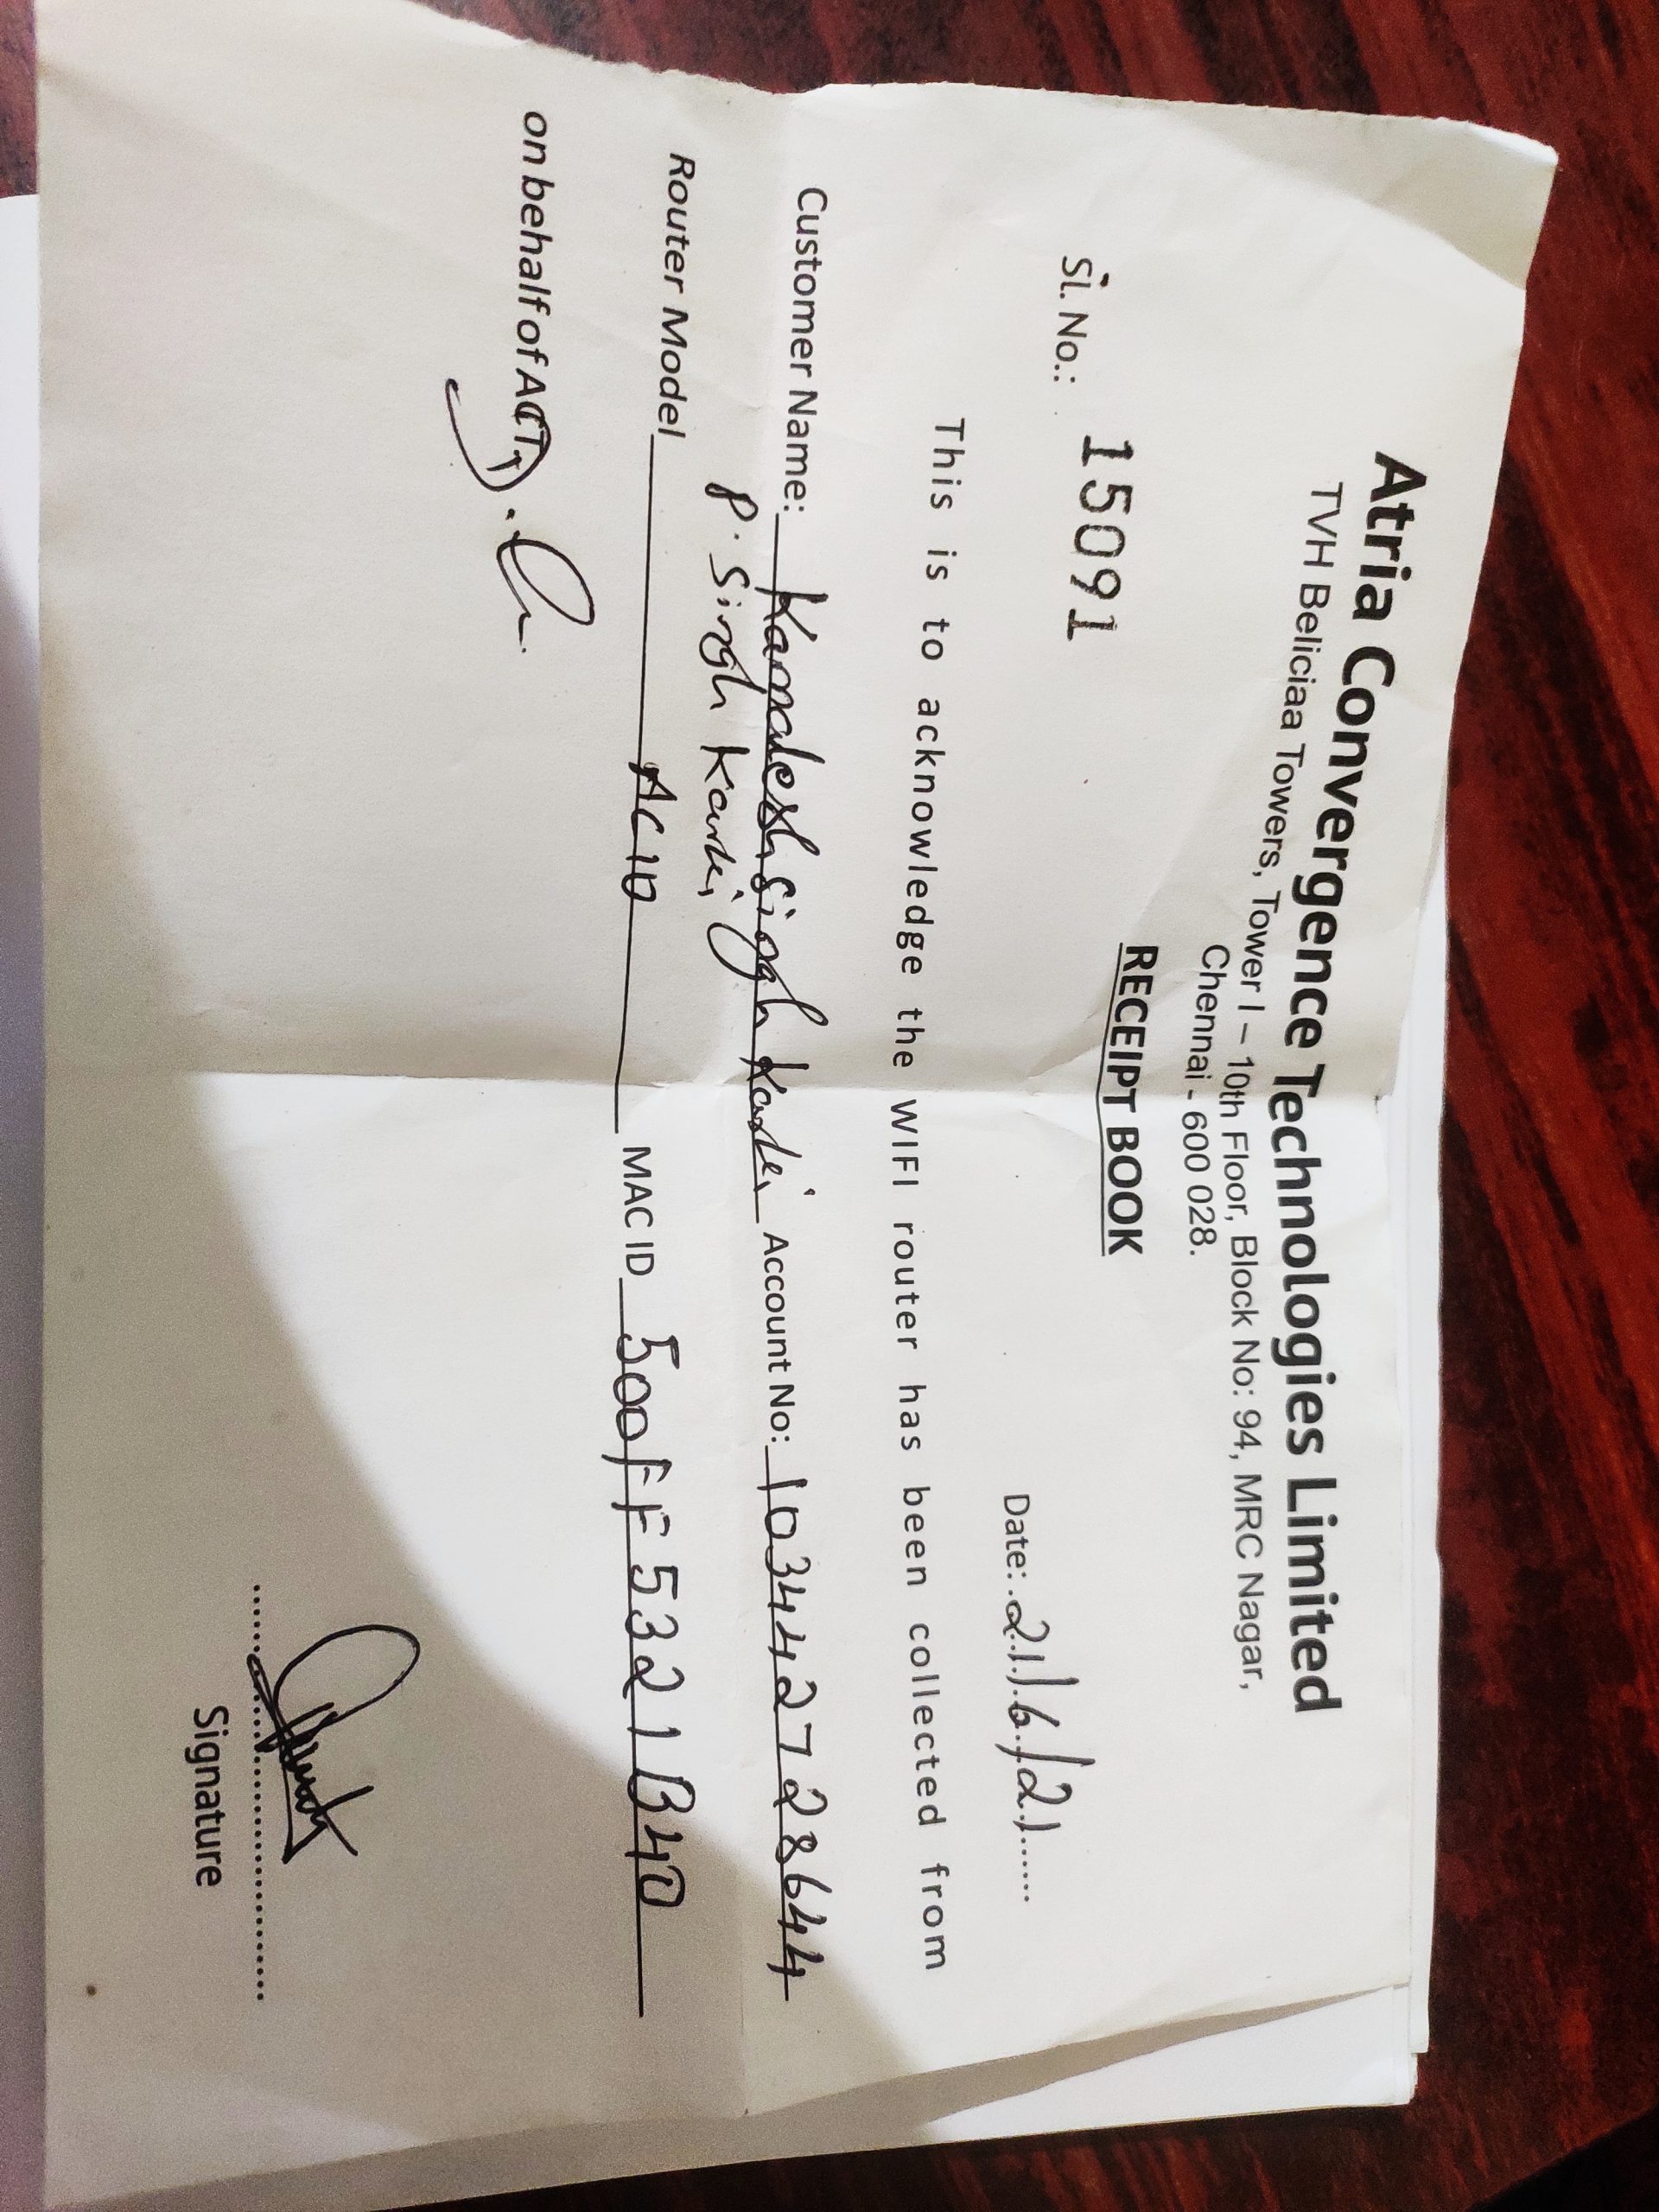 Atria Convergence Technologies Limited
TVH Beliciaa Towers, Tower I – 10th Floor, Block No: 94, MRC Nagar,
Chennai - 600 028.
RECEIPT BOOK
Sl. No.: 15091
Date: 21/6/21
This is to acknowledge the WIFI router has been collected from
Customer Name: Kamalesh Singh Account No: 103442728644
P. Singh
Router Model AC10 MAC ID 500FF5321B40
on behalf of ACT
Signature